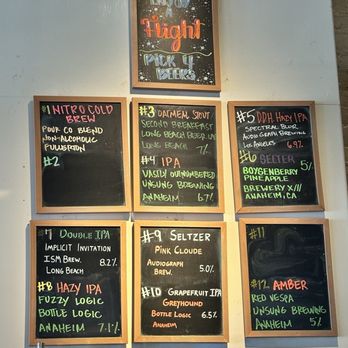 A
Flight
Pick 4
Beers
#1 Nitro Cold
Brew
Pour Co Blend
Non-Alcoholic
Fullerton
#2
#3 Oatmeal Stout
Second Breakfast
Long Beach Beer Lab
Long Beach 7%
#4 IPA
Vastly Outnumbered
Unsung Brewing
Anaheim 6.7%
#5 DDH Hazy IPA
Spectral Blur
Audiograph Brewing
Los Angeles 6.9%
#6 Selter
Boysenberry 5%
Pineapple
Brewery X///
Anaheim, CA
7 Double IPA
Implicit Invitation
ISM Brew. 8.2%
Long Beach
#8 Hazy IPA
Fuzzy Logic
Bottle Logic
Anaheim 7.1%
#9 Seltzer
Pink Cloude
Audiograph
Brew. 5.0%
#10 Grapefruit IPA
Greyhound
Bottle Logic 6.5%
Anaheim
#11
#12 Amber
Red Vespa
Unsung Brewing
Anaheim 5%